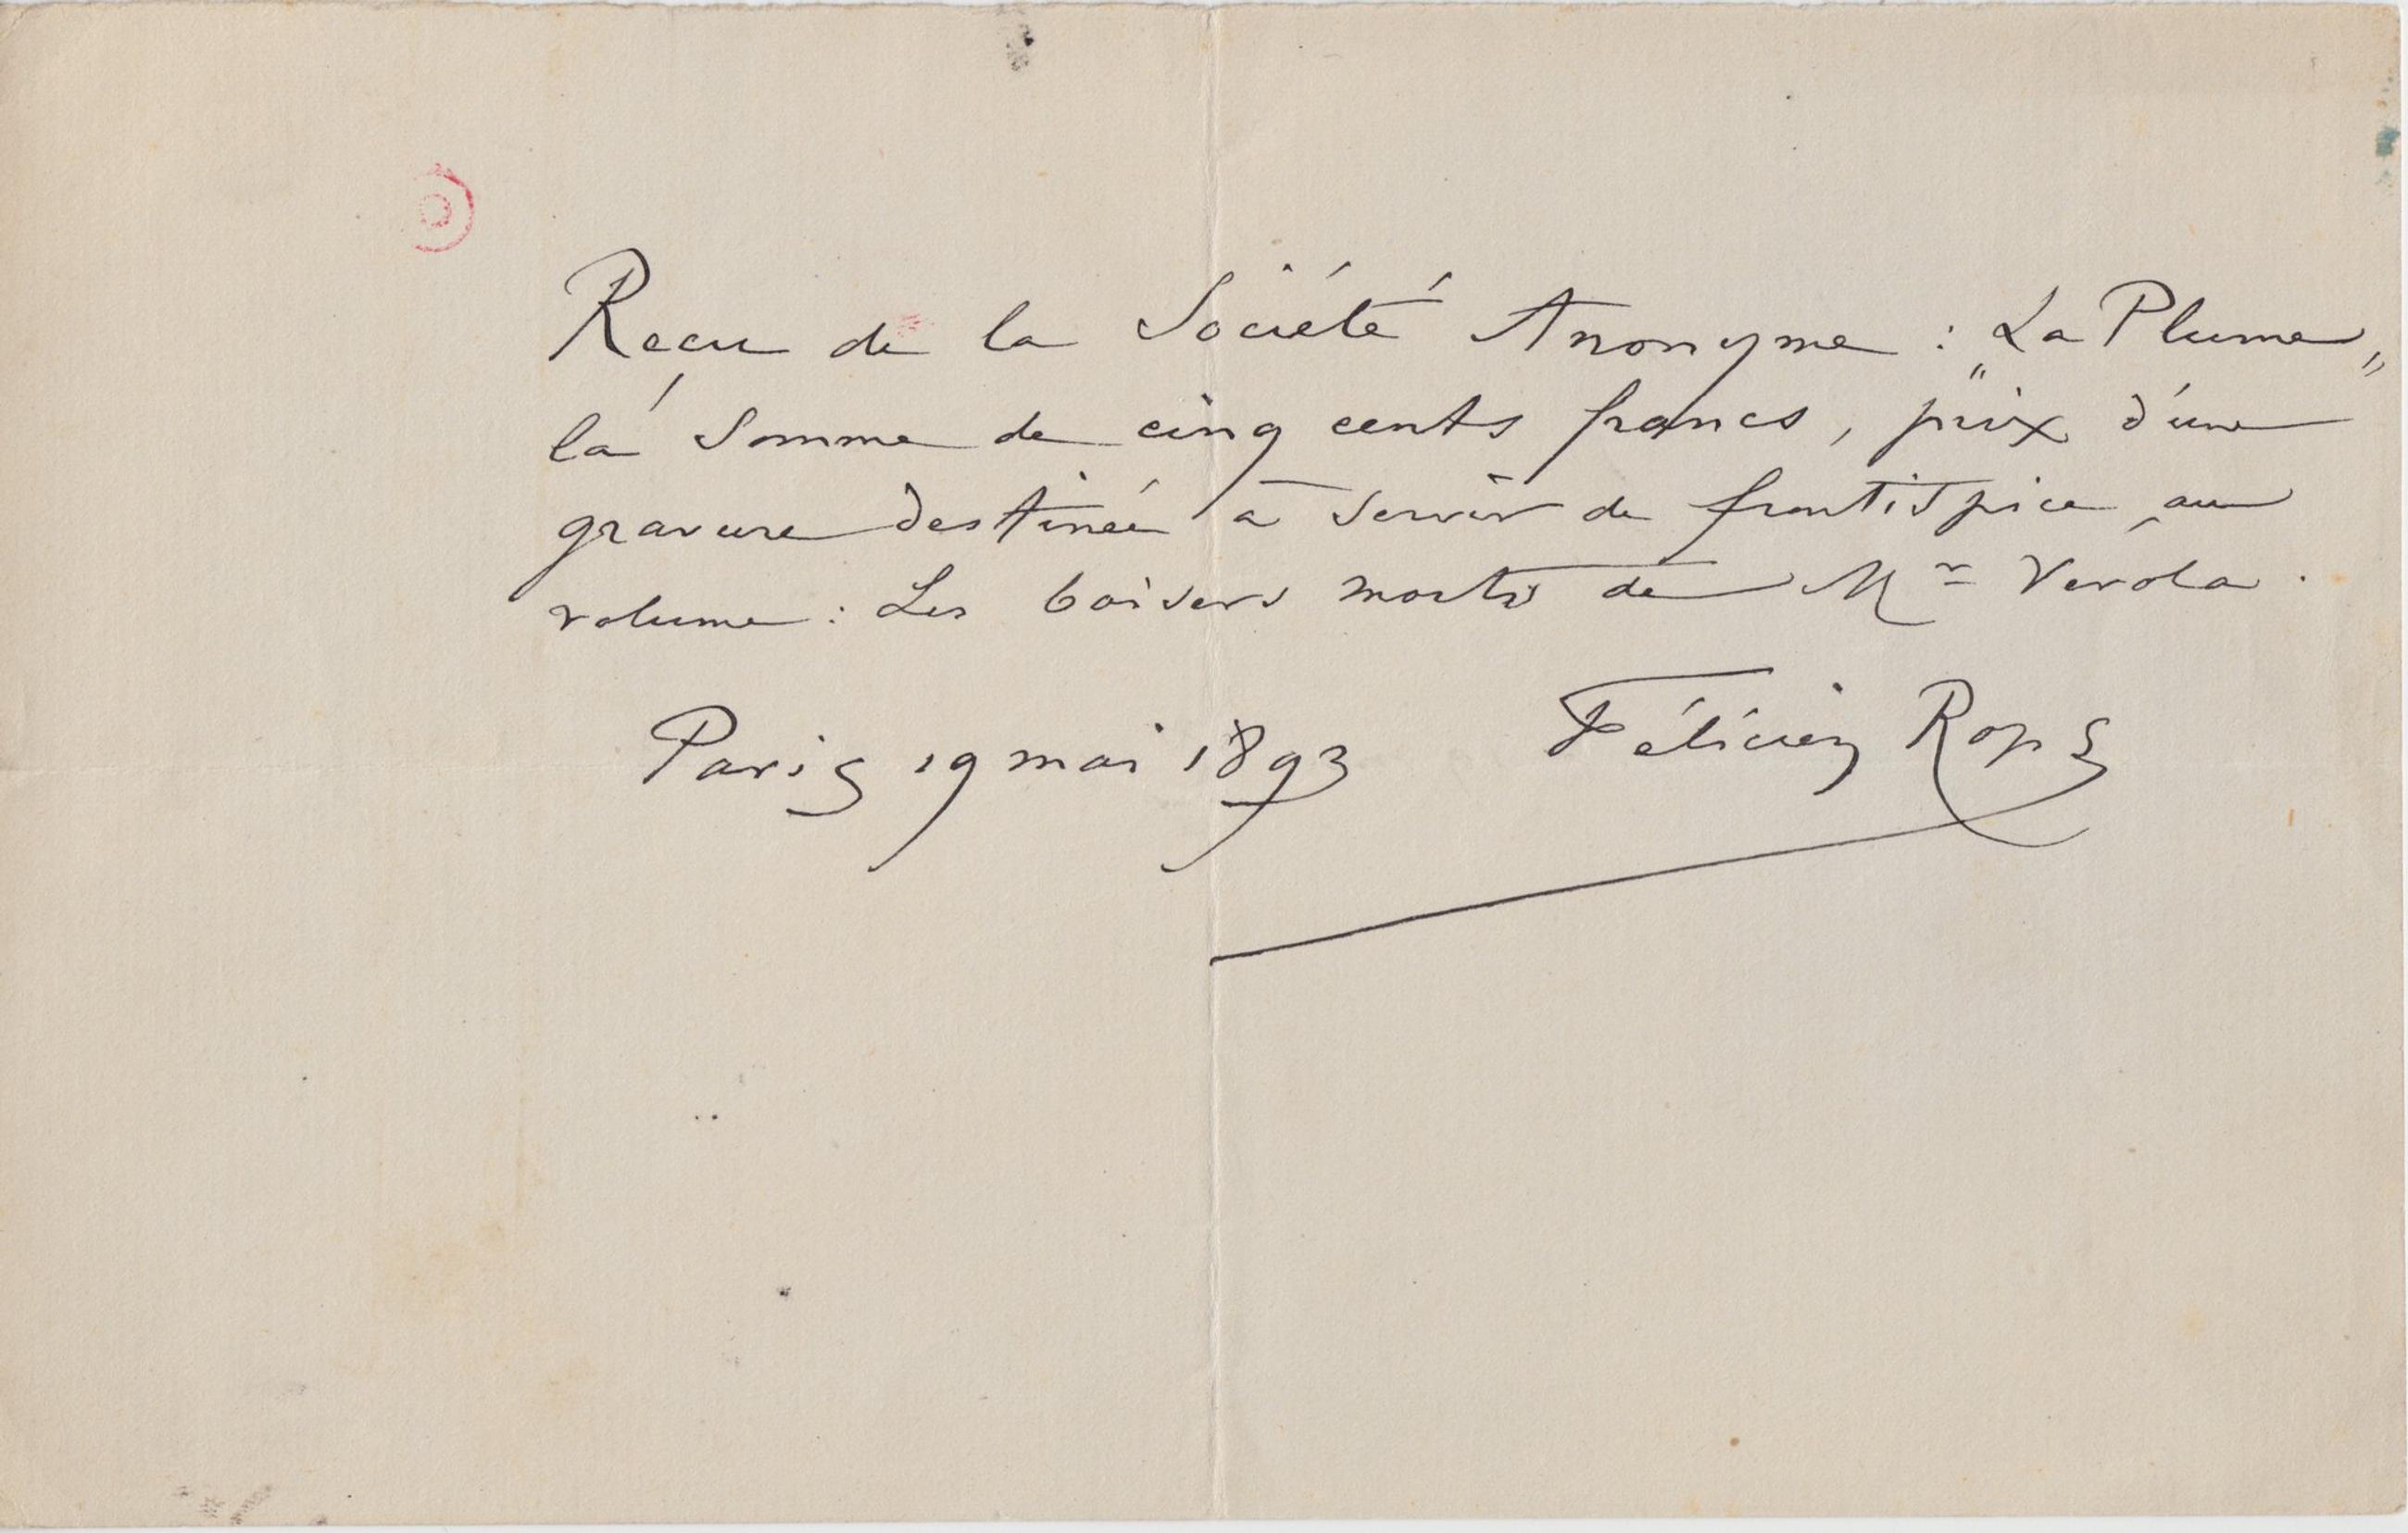 Reçu de la Société Anonyme : „La Plume„
la Somme de cinq cents francs, prix d'une
gravure destinée à servir de frontispice au
volume : Les baisers morts de Mr Vérola.
Paris 19 mai 1893 Félicien Rops